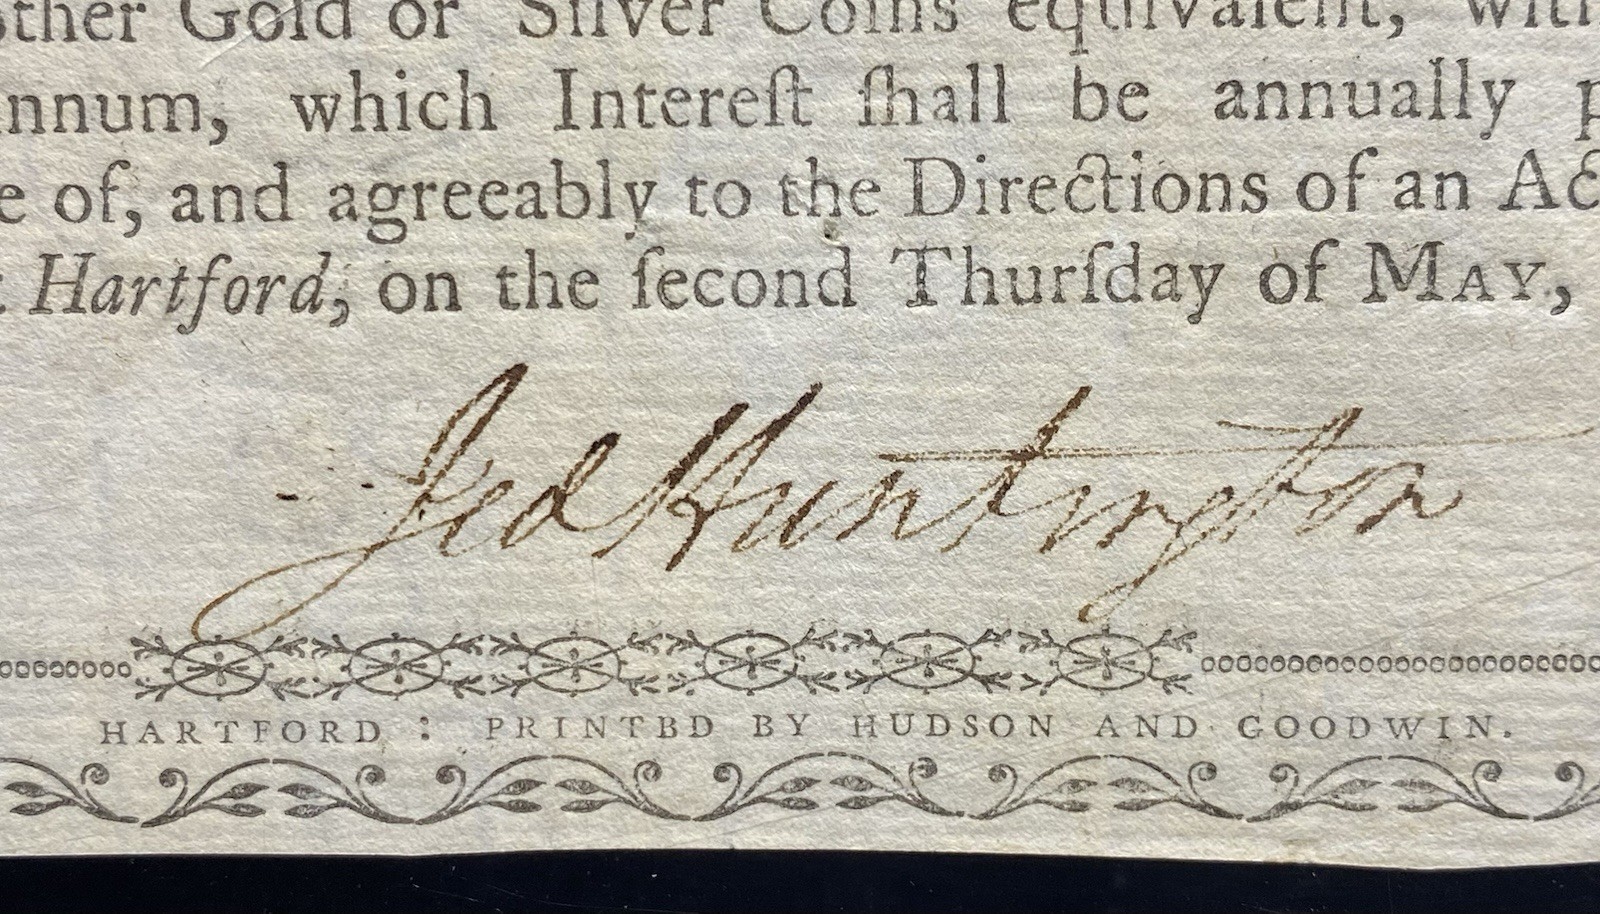 other Gold or Silver Coins equivalent, with
nnum, which Intereſt ſhall be annually p
e of, and agreeably to the Directions of an Ac
: Hartford, on the ſecond Thurſday of MAY,
Jed Huntington
HARTFORD : PRINTBD BY HUDSON AND GOODWIN.